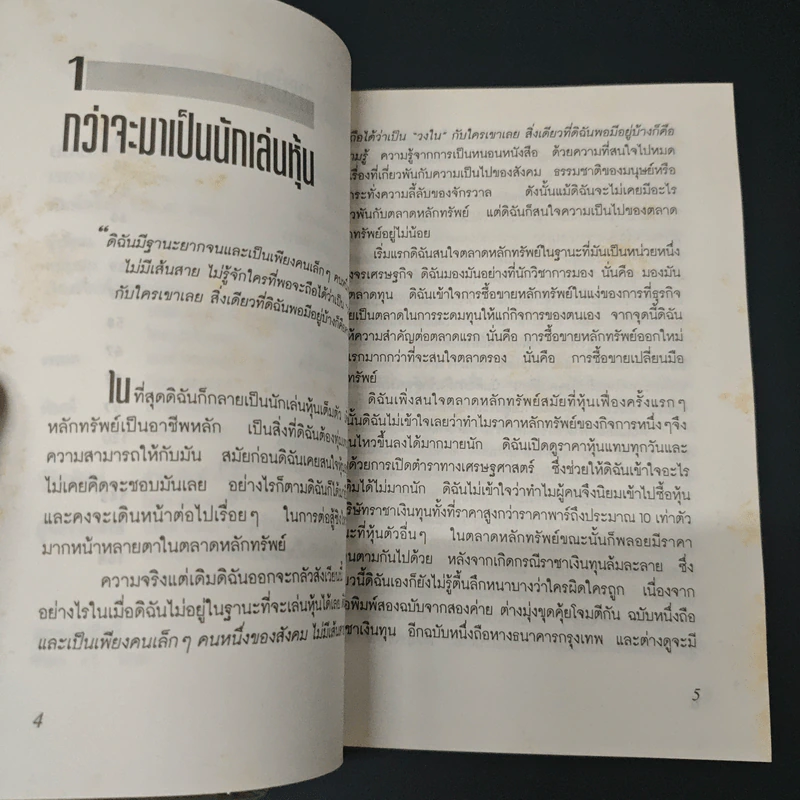 1
กว่าจะมาเป็นนักเล่นหุ้น
“ดิฉันมีฐานะยากจนและเป็นเพียงคนเล็กๆ
ไม่มีเส้นสาย ไม่รู้จักใครที่พอจะถือได้ว่าเป็น
กับใครเขาเลย สิ่งเดียวที่ดิฉันพอมีอยู่บ้างก็คือ
ในที่สุดดิฉันก็กลายเป็นนักเล่นหุ้นเต็มตัว
หลักทรัพย์เป็นอาชีพหลัก เป็นสิ่งที่ดิฉันต้องทุ่มเท
ความสามารถให้กับมัน สมัยก่อนดิฉันเคยสนใจหุ้น
ไม่เคยคิดจะชอบมันเลย อย่างไรก็ตามดิฉันก็ได้
และคงจะเดินหน้าต่อไปเรื่อยๆ ในการต่อสู้
มากหน้าหลายตาในตลาดหลักทรัพย์
ความจริงแต่เดิมดิฉันออกจะกลัวสังเวียนนี้
อย่างไรในเมื่อดิฉันไม่อยู่ในฐานะที่จะเล่นหุ้นได้เลย
และเป็นเพียงคนเล็กๆ คนหนึ่งของสังคม ไม่มีเส้น
4
ถือได้ว่าเป็น “วงใน” กับใครเขาเลย สิ่งเดียวที่ดิฉันพอมีอยู่บ้างก็คือ
ความรู้จากการเป็นหนอนหนังสือ ด้วยความที่สนใจไปหมด
เรื่องที่เกี่ยวพันกับความเป็นไปของสังคม ธรรมชาติของมนุษย์หรือ
กระทั่งความลี้ลับของจักรวาล ดังนั้นแม้ดิฉันจะไม่เคยมีอะไร
วพันกับตลาดหลักทรัพย์ แต่ดิฉันก็สนใจความเป็นไปของตลาด
ทรัพย์อยู่ไม่น้อย
เริ่มแรกดิฉันสนใจตลาดหลักทรัพย์ในฐานะที่มันเป็นหน่วยหนึ่ง
งจรเศรษฐกิจ ดิฉันมองมันอย่างที่นักวิชาการมอง นั่นคือ มองมัน
ตลาดทุน ดิฉันเข้าใจการซื้อขายหลักทรัพย์ในแง่ของการที่ธุรกิจ
ยเป็นตลาดในการระดมทุนให้แก่กิจการของตนเอง จากจุดนี้ดิฉัน
ห้ความสำคัญต่อตลาดแรก นั่นคือ การซื้อขายหลักทรัพย์ออกใหม่
แรกมากกว่าที่จะสนใจตลาดรอง นั่นคือ การซื้อขายเปลี่ยนมือ
ทรัพย์
ดิฉันเพิ่งสนใจตลาดหลักทรัพย์สมัยที่หุ้นเฟื่องครั้งแรกๆ
นั้นดิฉันไม่เข้าใจเลยว่าทำไมราคาหลักทรัพย์ของกิจการหนึ่งๆจึง
นไหวขึ้นลงได้มากมายนัก ดิฉันเปิดดูราคาหุ้นแทบทุกวันและ
ด้วยการเปิดตำราทางเศรษฐศาสตร์ ซึ่งช่วยให้ดิฉันเข้าใจอะไร
ติมได้ไม่มากนัก ดิฉันไม่เข้าใจว่าทำไมผู้คนจึงนิยมเข้าไปซื้อหุ้น
บริษัทราชาเงินทุนทั้งที่ราคาสูงกว่าราคาพาร์ถึงประมาณ 10 เท่าตัว
ะที่หุ้นตัวอื่นๆ ในตลาดหลักทรัพย์ขณะนั้นก็พลอยมีราคา
นตามกันไปด้วย หลังจากเกิดกรณีราชาเงินทุนล้มละลาย ซึ่ง
ยวนี้ดิฉันเองก็ยังไม่รู้ตื้นลึกหนาบางว่าใครผิดใครถูก เนื่องจาก
อพิมพ์สองฉบับจากสองค่าย ต่างมุ่งขุดคุ้ยโจมตีกัน ฉบับหนึ่งถือ
ชาเงินทุน อีกฉบับหนึ่งถือหางธนาคารกรุงเทพ และต่างดูจะมี
5